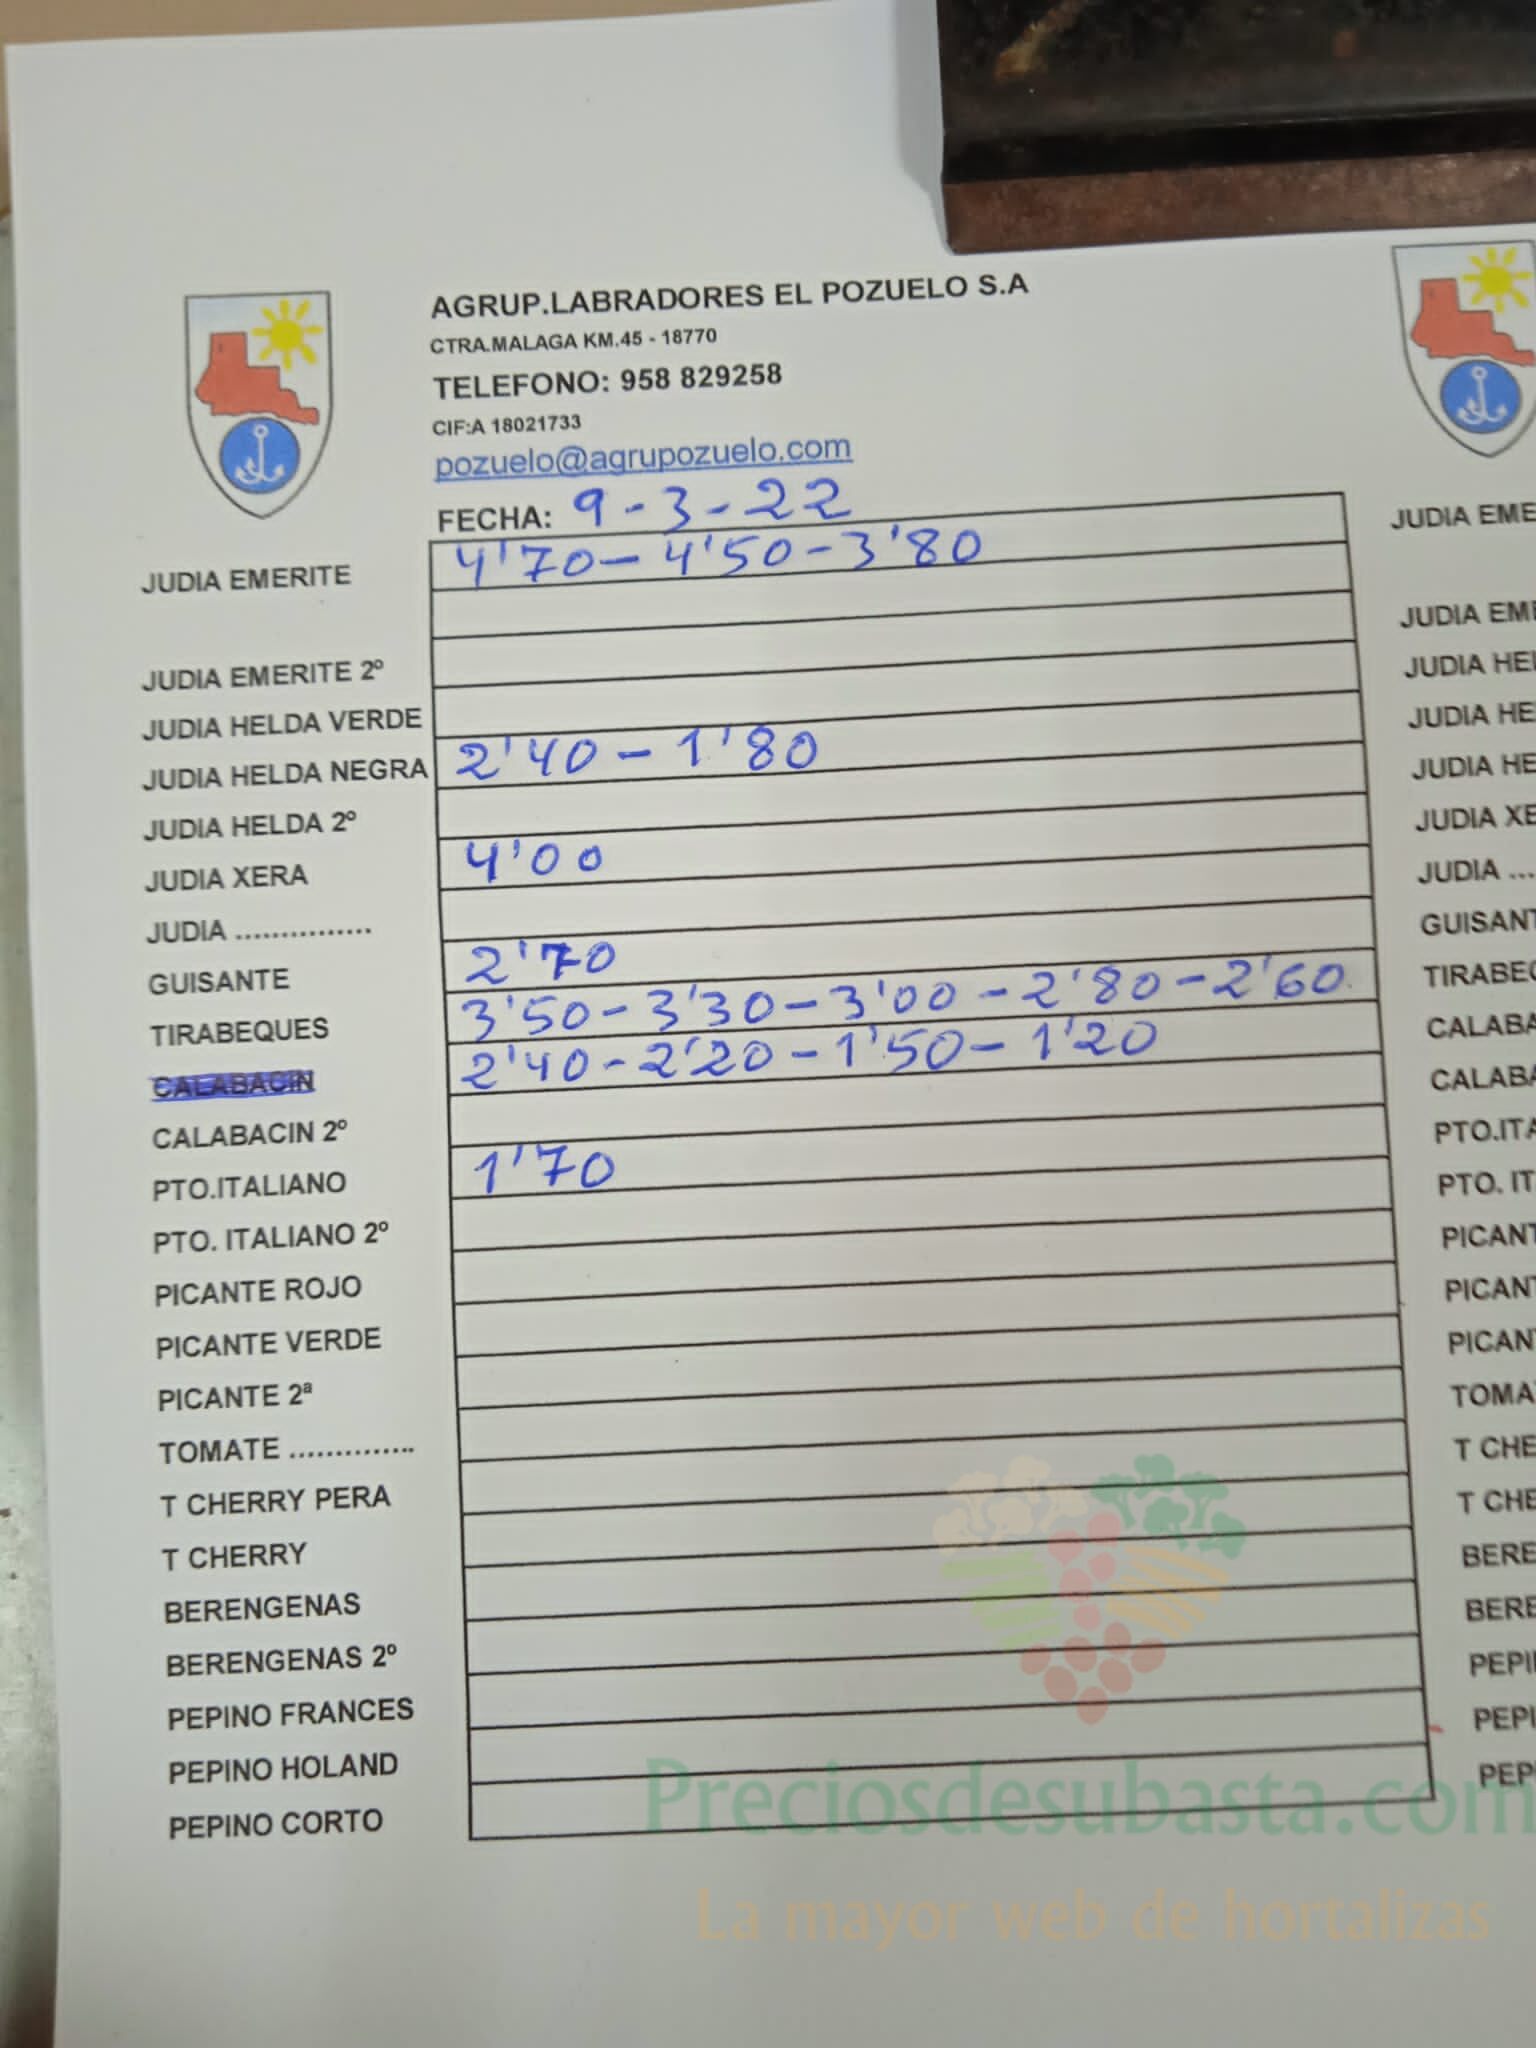 AGRUP.LABRADORES EL POZUELO S.A
CTRA.MALAGA KM.45 - 18770
TELEFONO: 958 829258
CIF:A 18021733
pozuelo@agrupozuelo.com
FECHA: 9-3-22
JUDIA EMERITE 4'70-4'50-3'80
JUDIA EMERITE 2º
JUDIA HELDA VERDE
JUDIA HELDA NEGRA 2'40-1'80
JUDIA HELDA 2º
JUDIA XERA 4'00
JUDIA ...............
GUISANTE 2'70
TIRABEQUES 3'50-3'30-3'00-2'80-2'60
CALABACIN 2'40-2'20-1'50-1'20
CALABACIN 2º
PTO.ITALIANO 1'70
PTO. ITALIANO 2º
PICANTE ROJO
PICANTE VERDE
PICANTE 2ª
TOMATE ..............
T CHERRY PERA
T CHERRY
BERENGENAS
BERENGENAS 2º
PEPINO FRANCES
PEPINO HOLAND
PEPINO CORTO
JUDIA EME
JUDIA EME
JUDIA HEL
JUDIA HE
JUDIA HE
JUDIA XE
JUDIA ...
GUISANT
TIRABEQ
CALABA
CALABA
PTO.ITA
PTO. IT
PICANT
PICANT
PICAN
TOMA
T CHE
T CHE
BERE
BERE
PEPI
PEPI
PEP
Preciosdesubasta.com
La mayor web de hortalizas